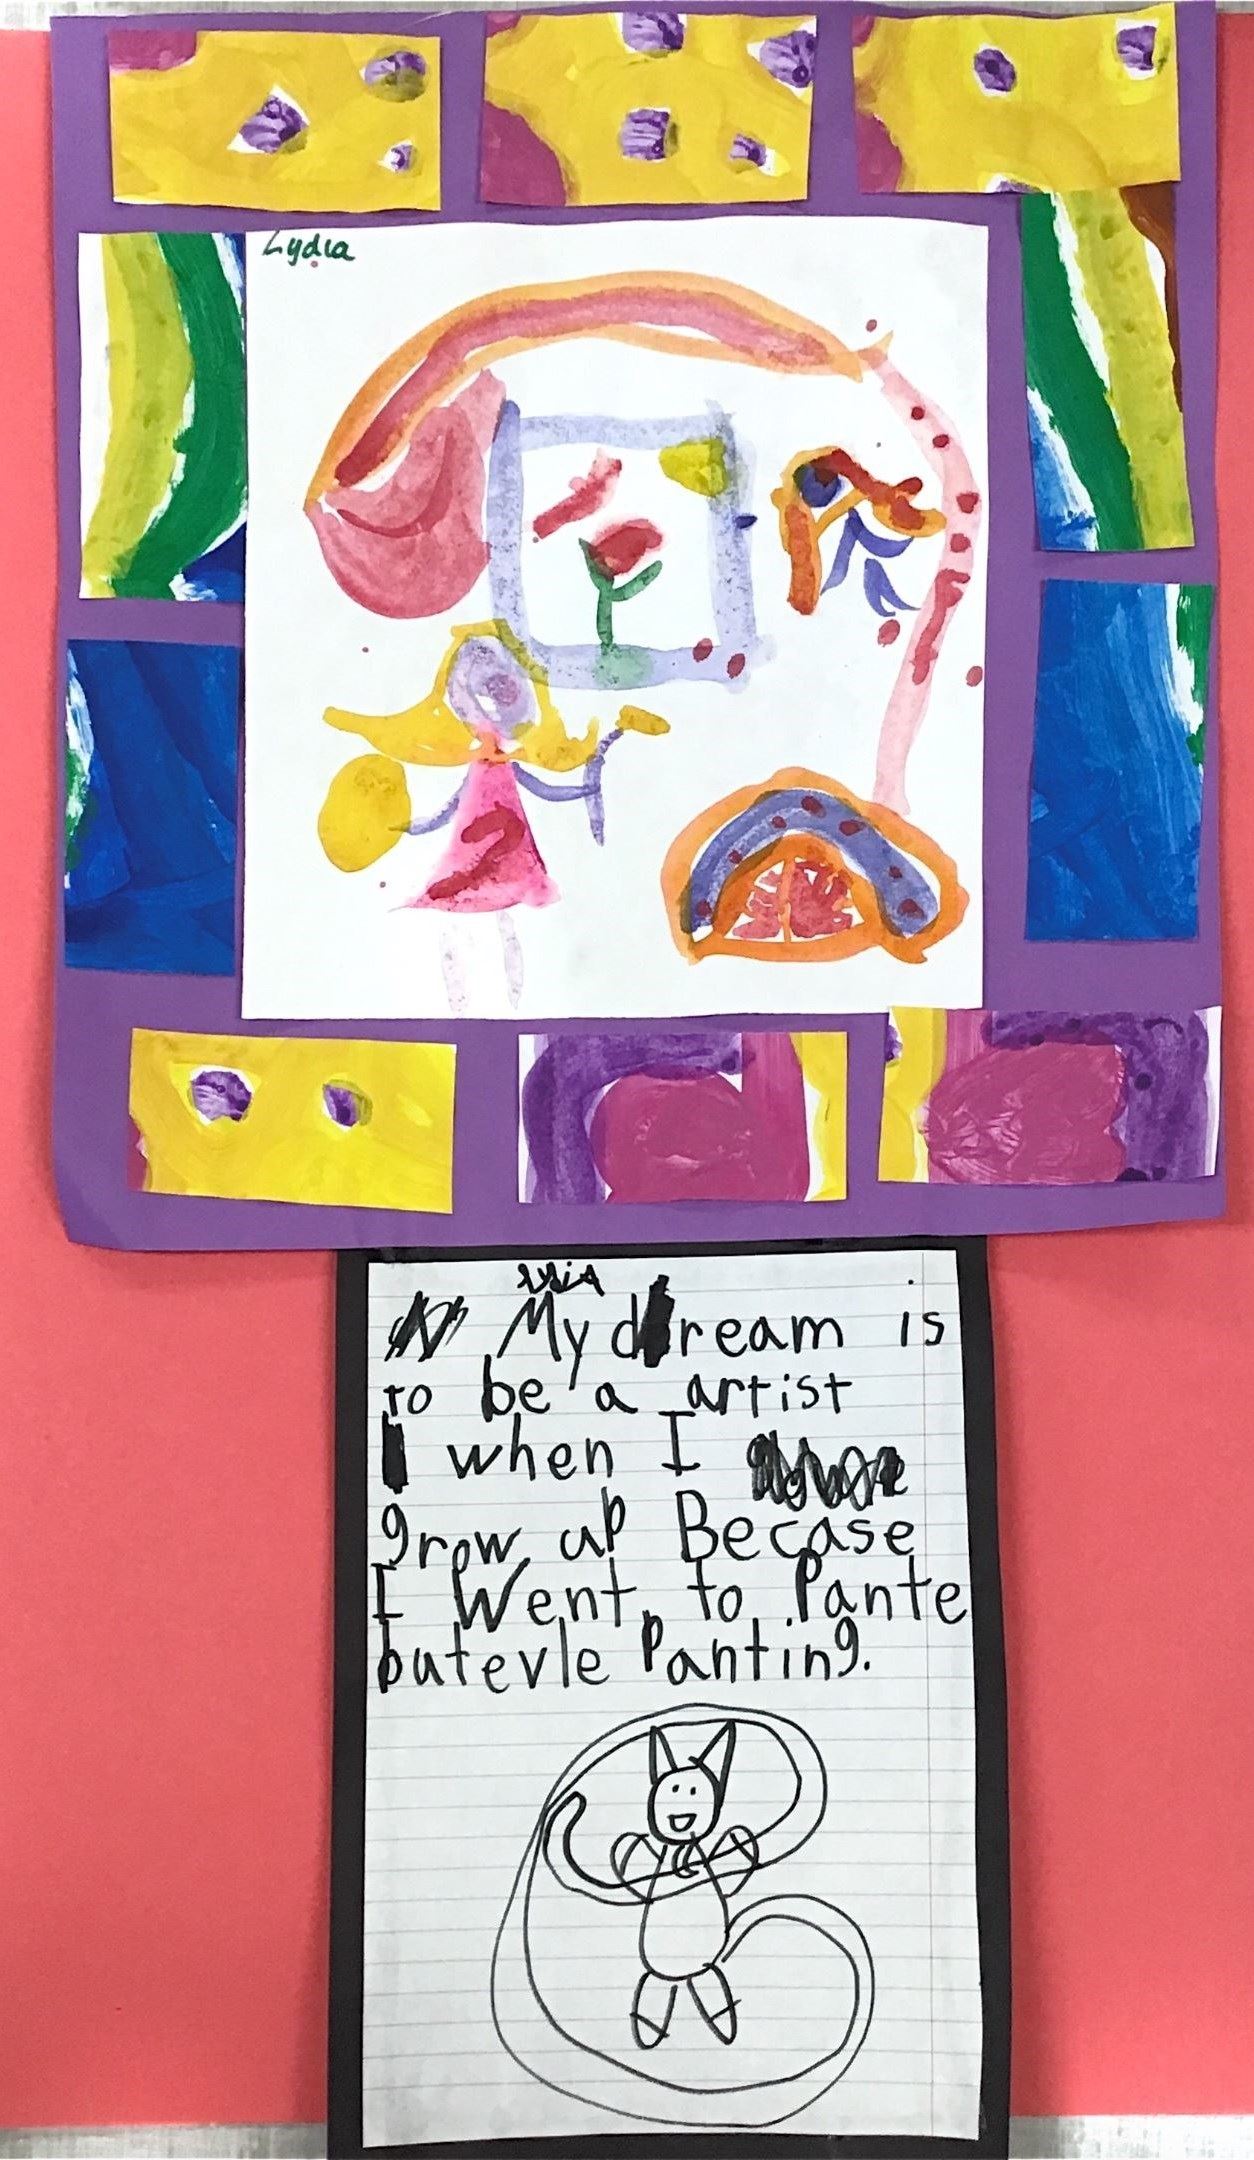 Lydia
My dream is
to be a artist
when I
grow up Becase
I Went to Pante
butevle Panting.